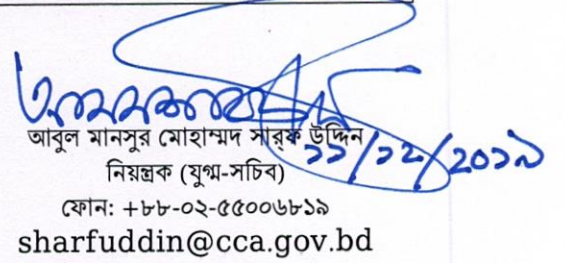 আবুল মানসুর মোহাম্মদ সারফ উদ্দিন
১১/১২/২০১৯
নিয়ন্ত্রক (যুগ্ম-সচিব)
ফোন: +৮৮-০২-৫৫০০৬৮১৯
sharfuddin@cca.gov.bd